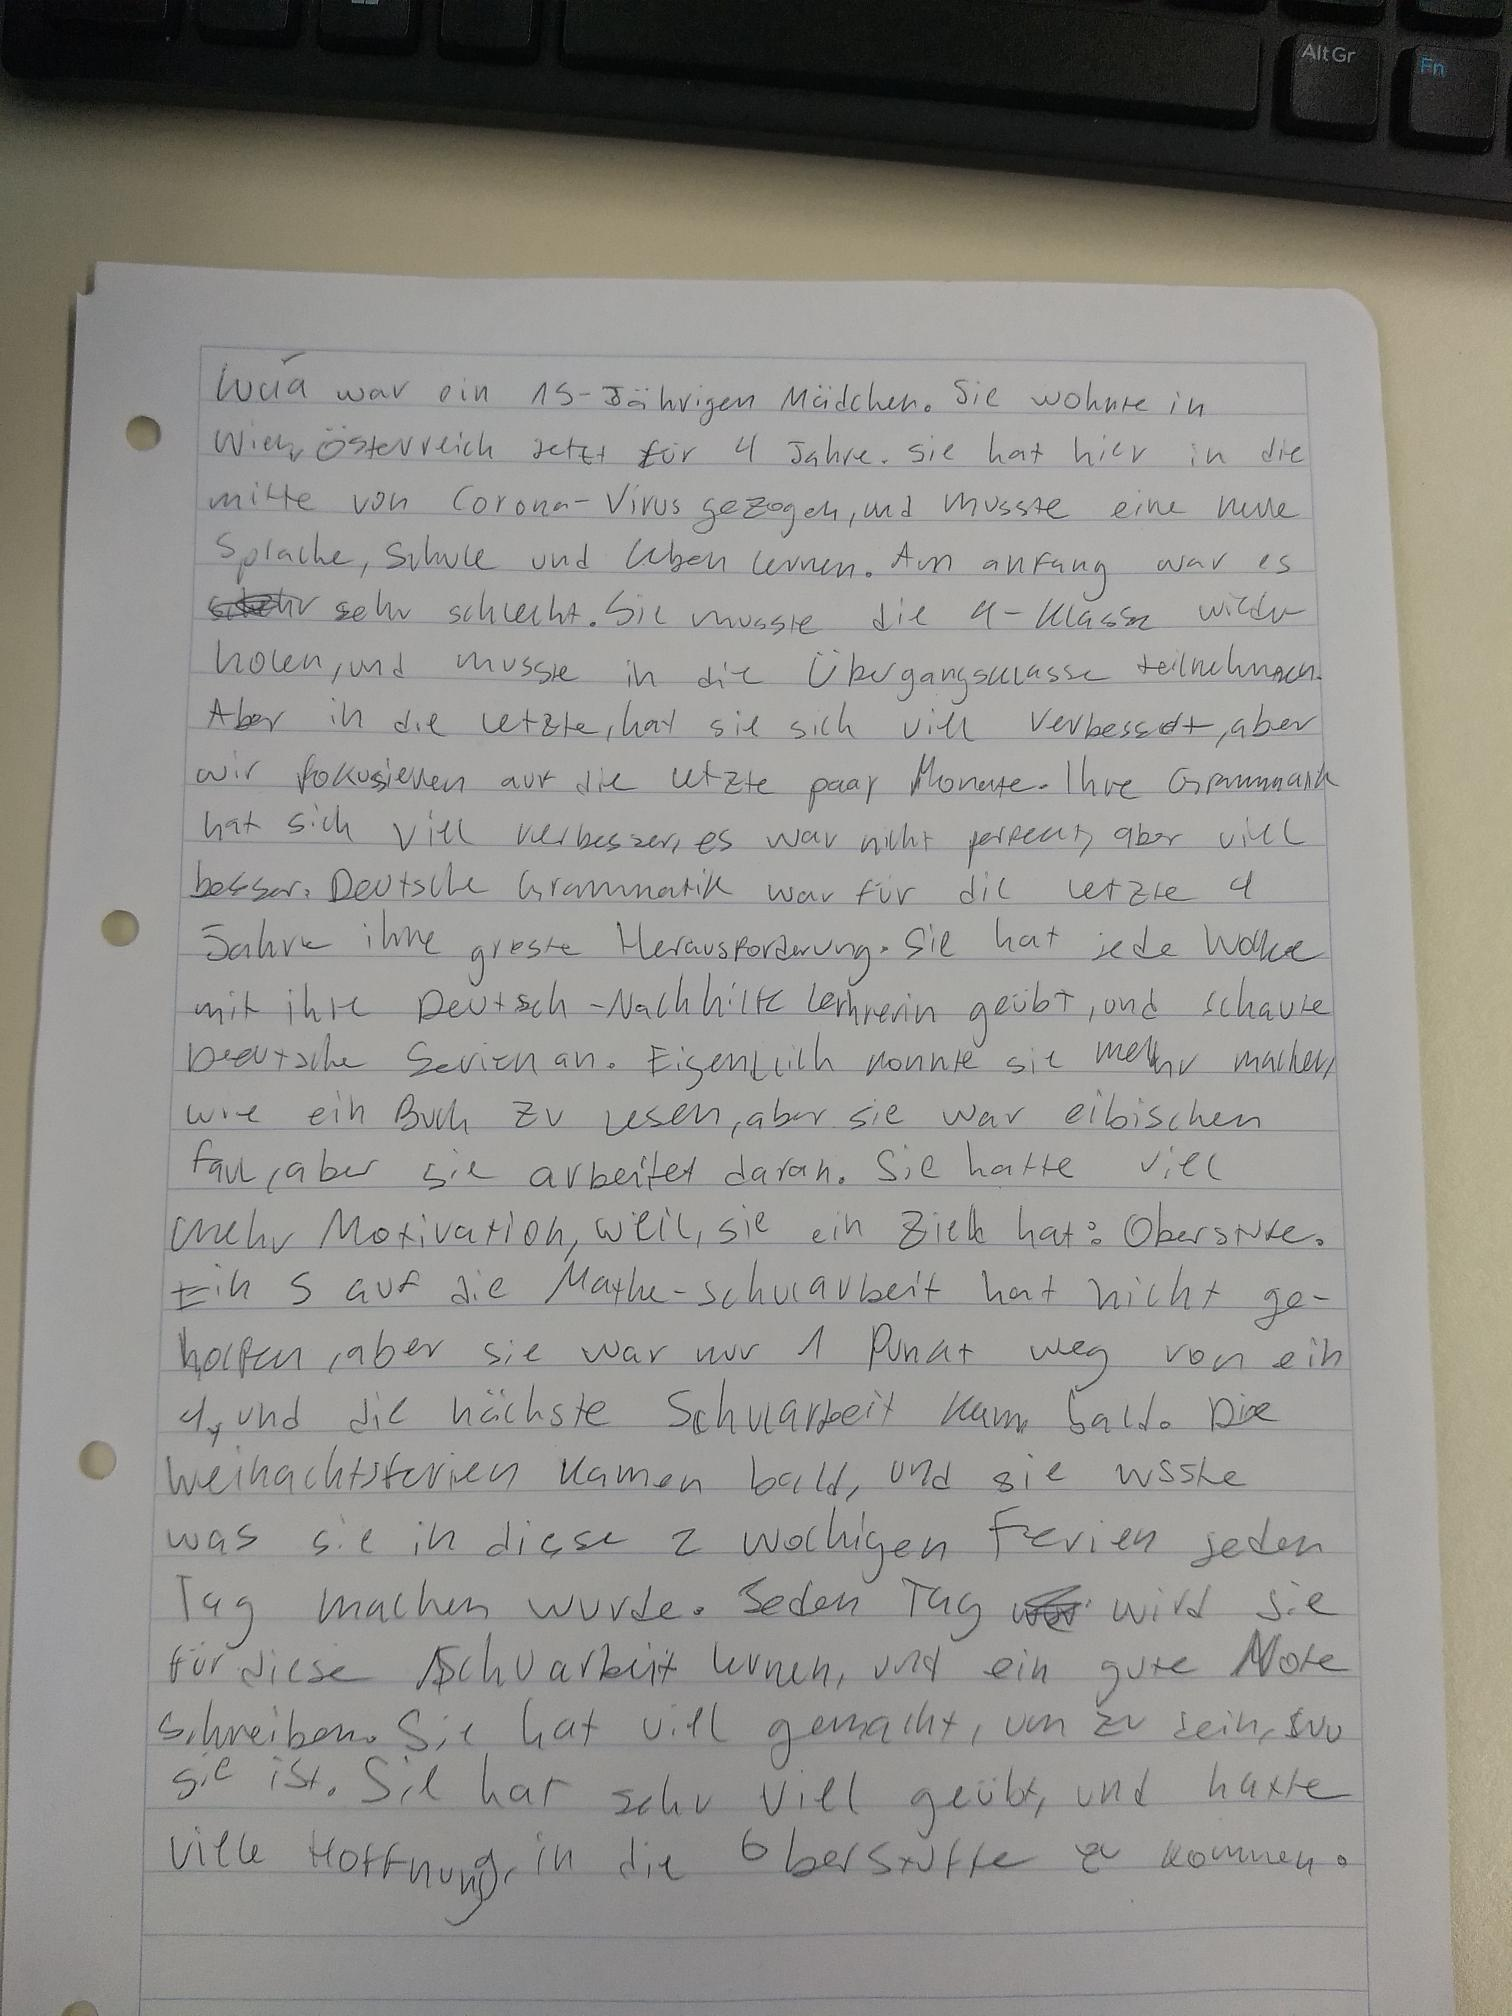 AltGr
Fn
Lucía war ein 15-Jährigen Mädchen. Sie wohnte in
Wien, Österreich Jetzt für 4 Jahre. Sie hat hier in die
mitte von Corona-Virus gezogen, und musste eine neue
Sprache, Schule und leben lernen. Am anfang war es
sehr schlecht. Sie musste die 4-Klasse wieder
holen, und musste in die Übergangsklasse teilnehmen.
Aber in die letzte, hat sie sich viell verbessert, aber
wir fokusieren auf die letzte paar Monate. Ihre Grammatik
hat sich viell verbesser, es war nicht perfekt, aber viell
besser. Deutsche Grammatik war für die letzte 4
Jahre ihre groste Herausforderung. Sie hat jede Woche
mit ihre Deutsch-Nachhilfe lehrerin geübt, und schaute
Deutsche Serien an. Eigentlich konnte sie mehr machen,
wie ein Buch zu lesen, aber sie war eibischen
faul, aber sie arbeitet daran. Sie hatte viell
mehr Motivation, weil, sie ein Ziell hat: Oberstufe.
Ein 5 auf die Mathe-schularbeit hat nicht ge-
holfen, aber sie war nur 1 Punkt weg von ein
4, und die nächste Schularbeit kam bald. Die
Weihnachtsferien kamen bald, und sie wsste
was sie in diese 2 wochigen Ferien jeden
Tag machen wurde. Jeden Tag wird sie
für diese Schularbeit lernen, und ein gute Note
schreiben. Sie hat viell gemacht, um zu sein, wo
sie ist. Sie hat sehr viell geübt, und hatte
ville Hoffnung, in die Oberstuffe zu kommen.